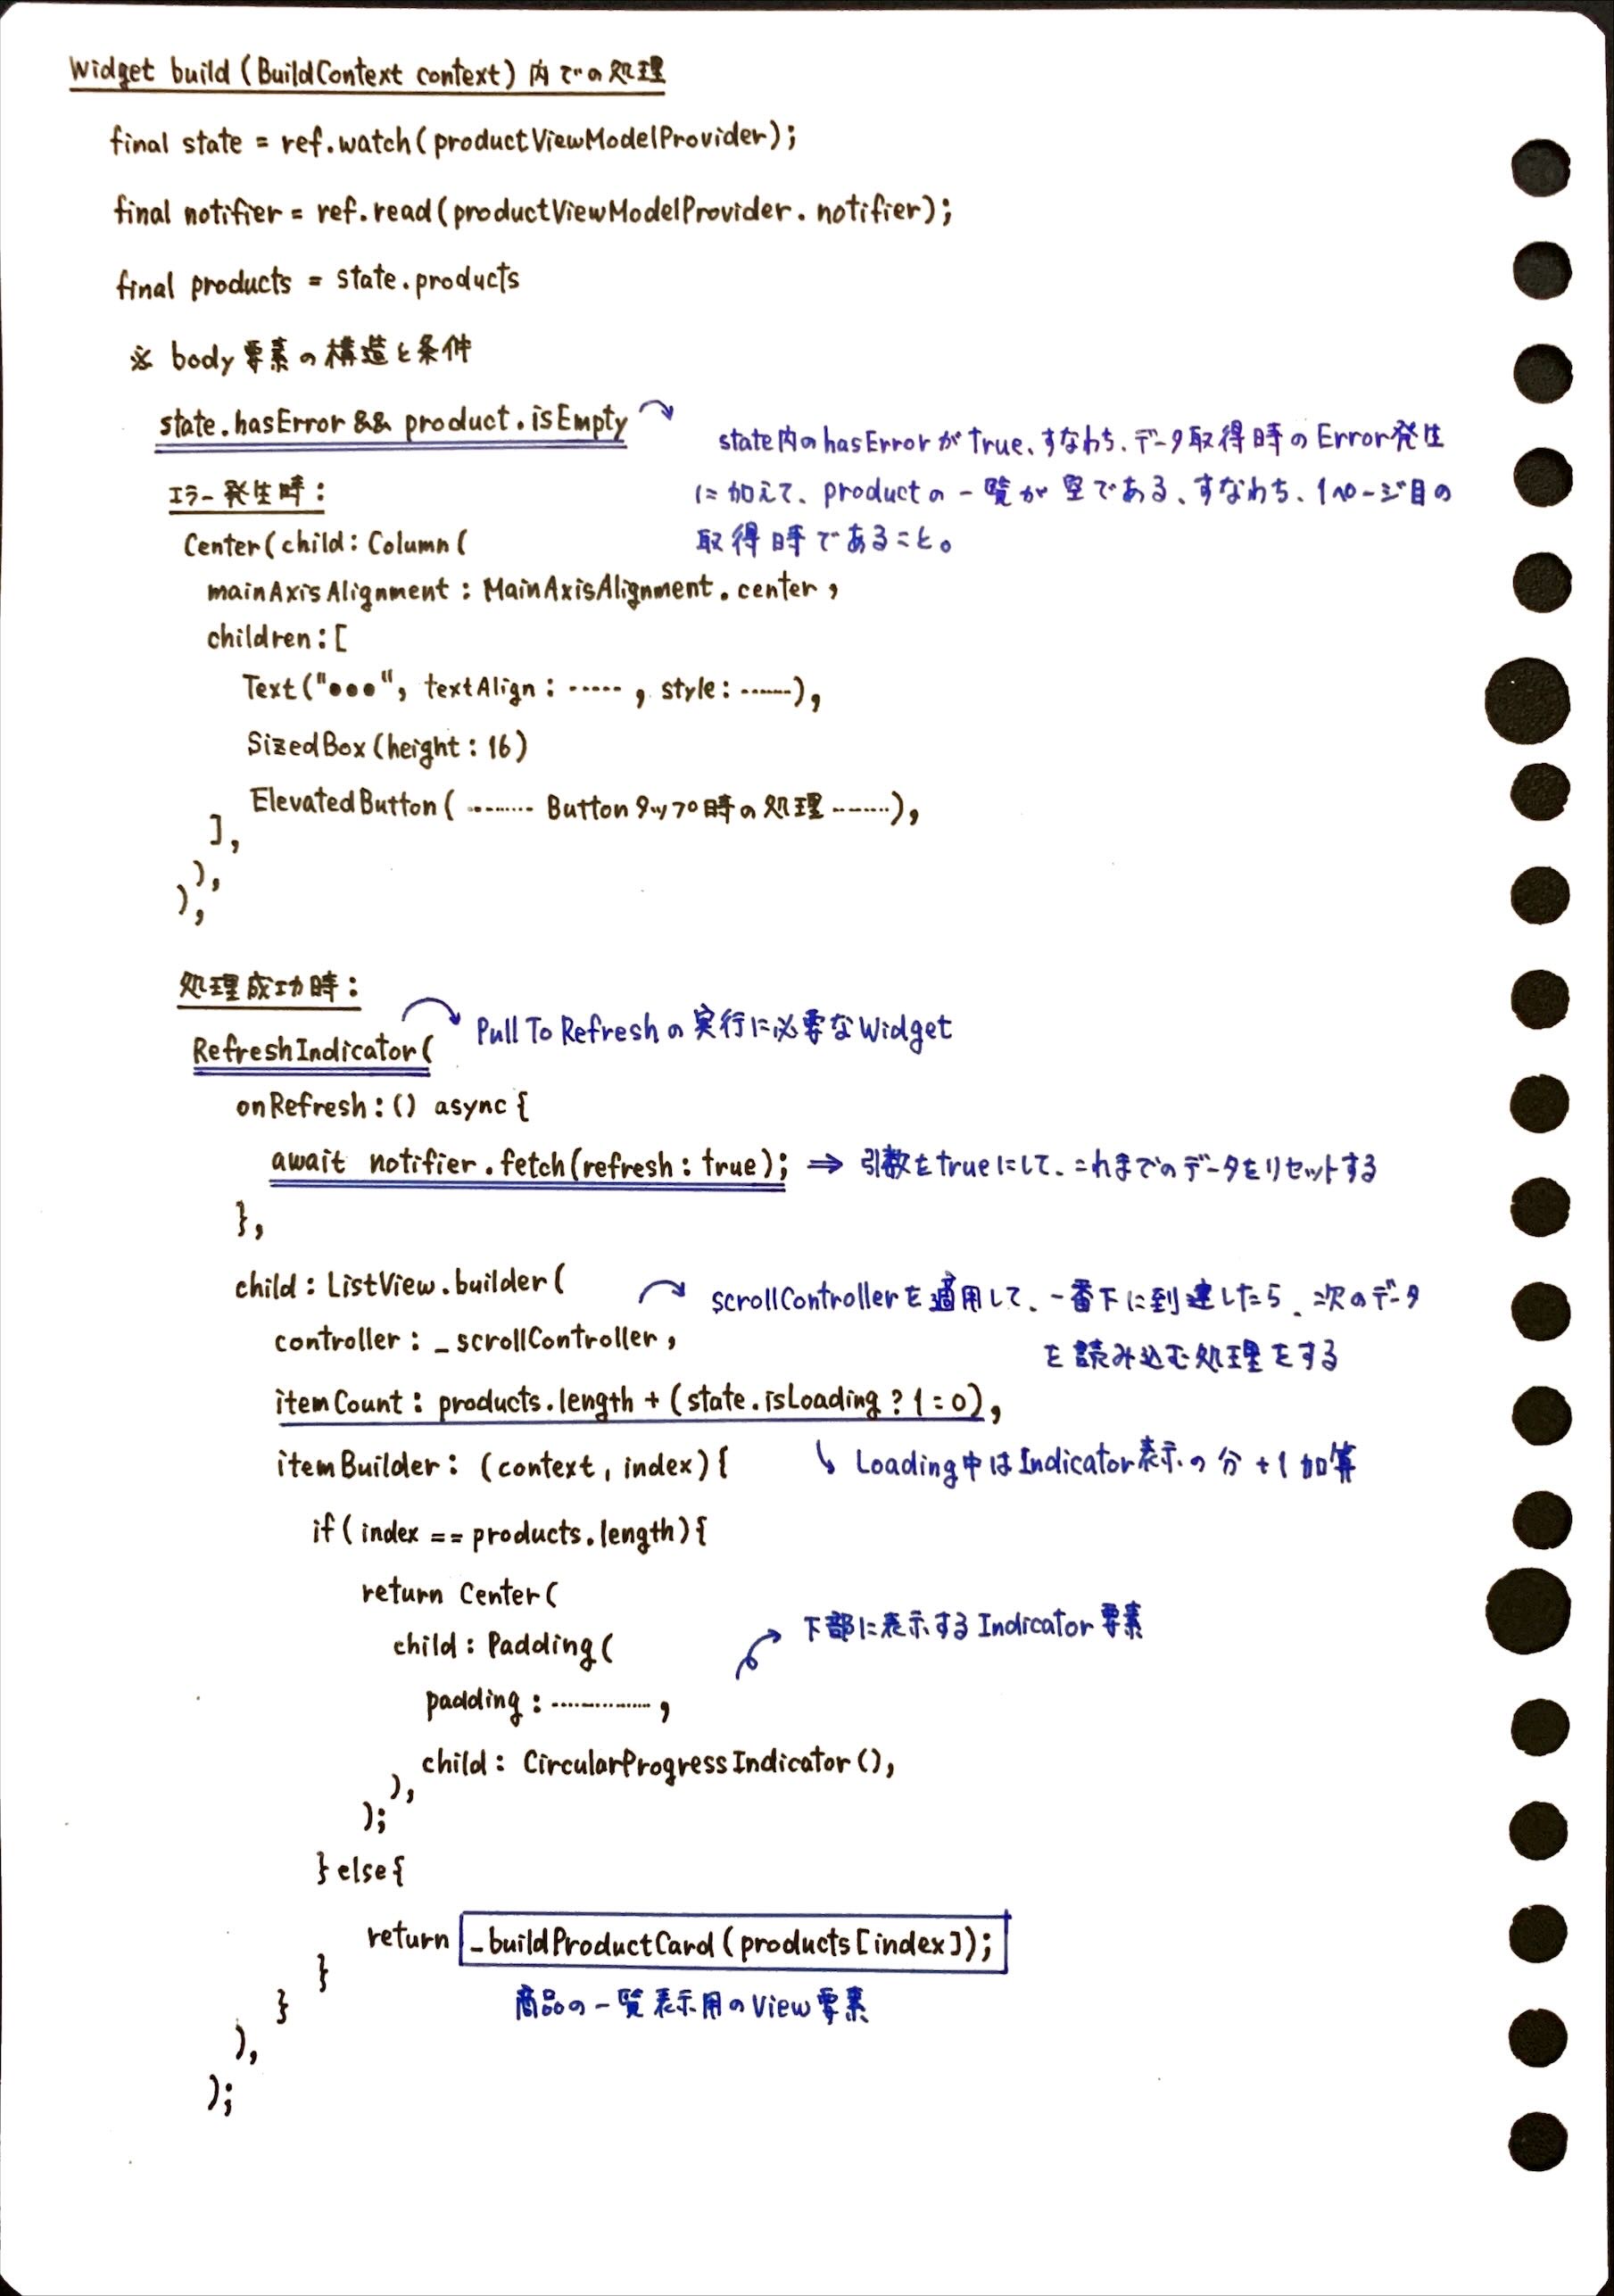 Widget build (BuildContext context) 内での処理
final state = ref.watch(productViewModelProvider);
final notifier = ref.read(productViewModelProvider.notifier);
final products = state.products
※ body要素の構造と条件
state.hasError && product.isEmpty
state内のhasErrorがtrue、すなわち、データ取得時のError発生
に加えて、productの一覧が空である、すなわち、1ページ目の
取得時であること。
エラー発生時:
Center(child: Column(
mainAxisAlignment: MainAxisAlignment.center,
children:[
Text("●●●", textAlign: ‥‥‥, style: ‥‥‥),
SizedBox(height: 16)
ElevatedButton( ‥‥‥ Buttonタップ時の処理 ‥‥‥),
],
),
),
処理成功時:
RefreshIndicator(
Pull To Refreshの実行に必要なWidget
onRefresh: () async {
await notifier.fetch(refresh: true); ⇒ 引数をtrueにして、これまでのデータをリセットする
},
child: ListView.builder(
scrollControllerを適用して、一番下に到達したら、次のデータ
を読み込む処理をする
controller: _scrollController,
itemCount: products.length + (state.isLoading ? 1 = 0),
itemBuilder: (context, index) {
Loading中はIndicator表示の分 +1 加算
if (index == products.length) {
return Center(
child: Padding(
下部に表示するIndicator要素
padding: ‥‥‥‥‥,
child: CircularProgressIndicator(),
),
);
} else {
return _buildProductCard(products[index]);
}
商品の一覧表示用のView要素
}
),
);